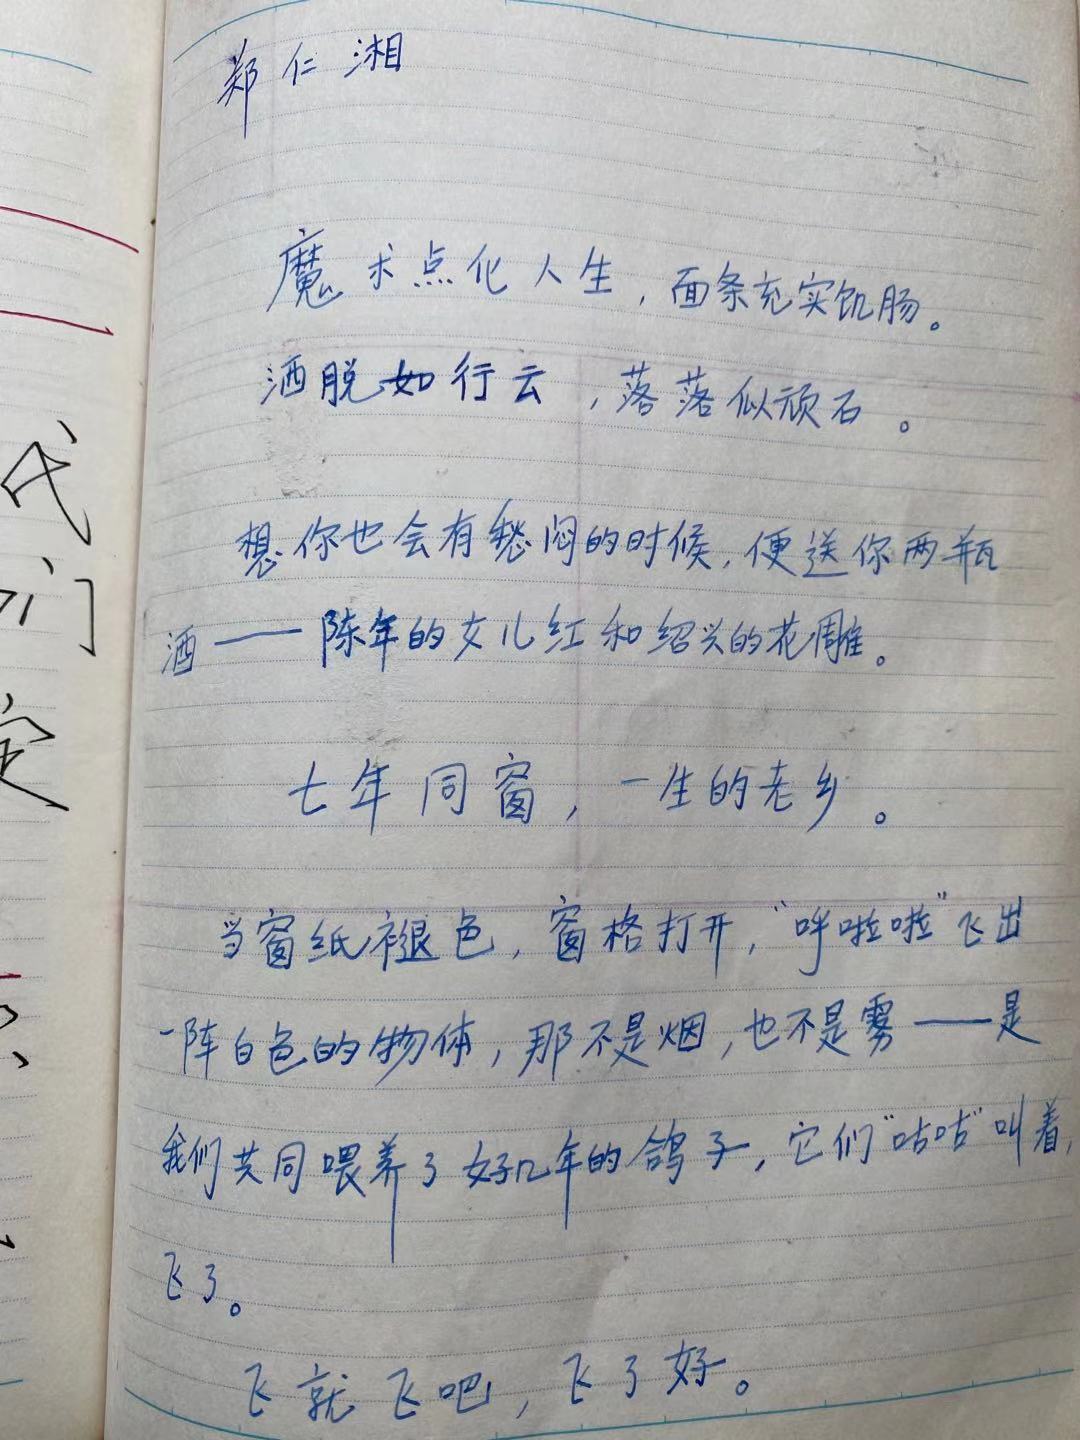 郑仁湘
魔术点化人生，面条充实饥肠。
洒脱如行云，落落似顽石。
想你也会有愁闷的时候，便送你两瓶
酒——陈年的女儿红和绍兴的花雕。
七年同窗，一生的老乡。
当窗纸褪色，窗格打开，“呼啦啦”飞出
一阵白色的物体，那不是烟，也不是雾——是
我们共同喂养了好几年的鸽子，它们“咕咕”叫着，
飞了。
飞就飞吧，飞了好。